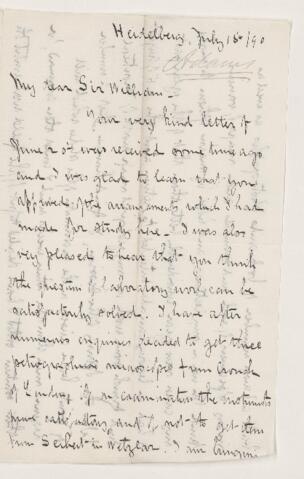 Heidelberg, July 18th/90
Adams
My dear Sir William -
Your very kind letter of
June 2nd was received some time ago
and I was glad to learn that you
approved of the arrangements which I had
made for study here - I was also
very pleased to hear that you think
the question of laboratory work can be
satisfactorily solved. I have after
numerous enquiries decided to get three
petrographical microscopes from Crouch
of London, if on examination the instruments
prove satisfactory and if not to get them
from Seibert in Wetzlar. I am